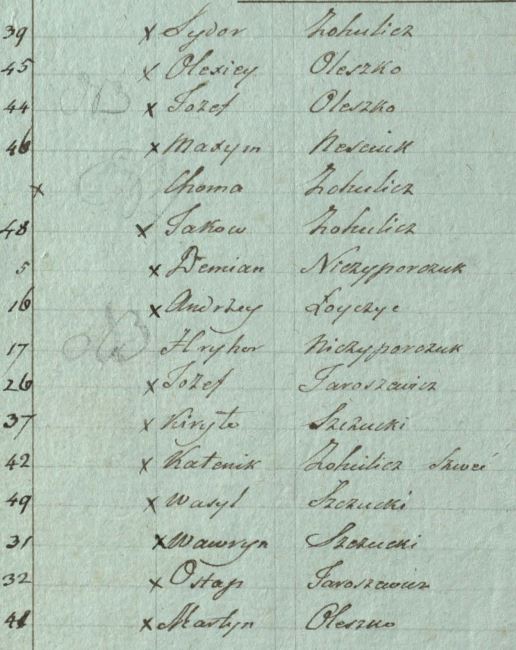 39 x Sydor Zohulicz
45 x Olexiey Oleszko
44 x Jozef Oleszko
46 x Maxym Nesciuk
x Choma Zohulicz
48 x Jakow Zohulicz
5 x Demian Niczyporczuk
16 x Andrzey Łoyczyc
17 Hryhor Niczyporczuk
26 x Jozef Jaroszewicz
37 x Kiryło Szczucki
42 x Katenik Zohulicz
49 x Wasyl Szczucki
31 x Wawryn Szczucki
32 x Ostap Jaroszewicz
41 x Martyn Oleszko